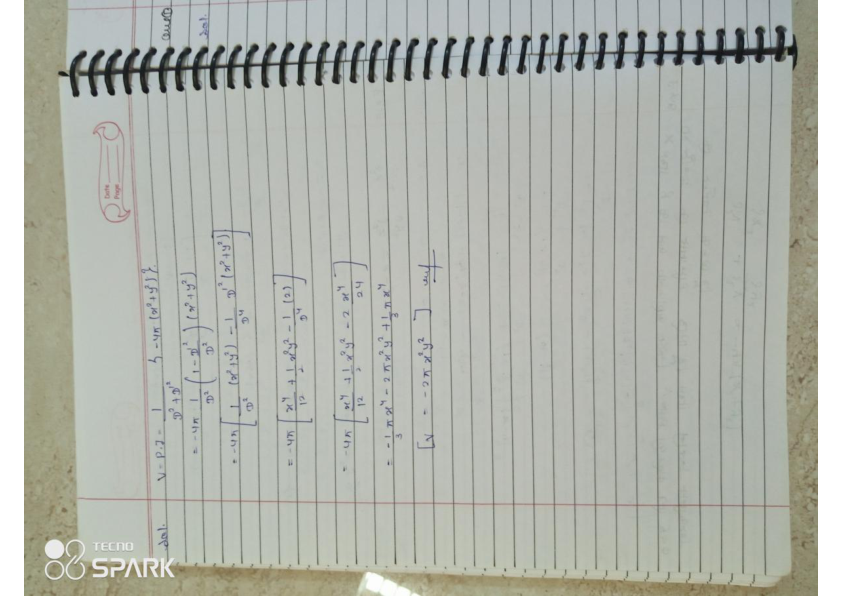 Date
Page
Sol.
V = P.I = 1/(D² + D'²) { -4π (x²+y²) }
= -4π 1/D² (1 - D'²/D²) (x²+y²)
= -4π [ 1/D² (x²+y²) - 1/D⁴ D'² (x²+y²) ]
= -4π [ x⁴/12 + 1/2 x²y² - 1/D⁴ (2) ]
= -4π [ x⁴/12 + 1/2 x²y² - 2 x⁴/24 ]
= -1/3 πx⁴ - 2πx²y² + 1/3 πx⁴
[ V = -2πx²y² ]
Sol.
TECNO
SPARK